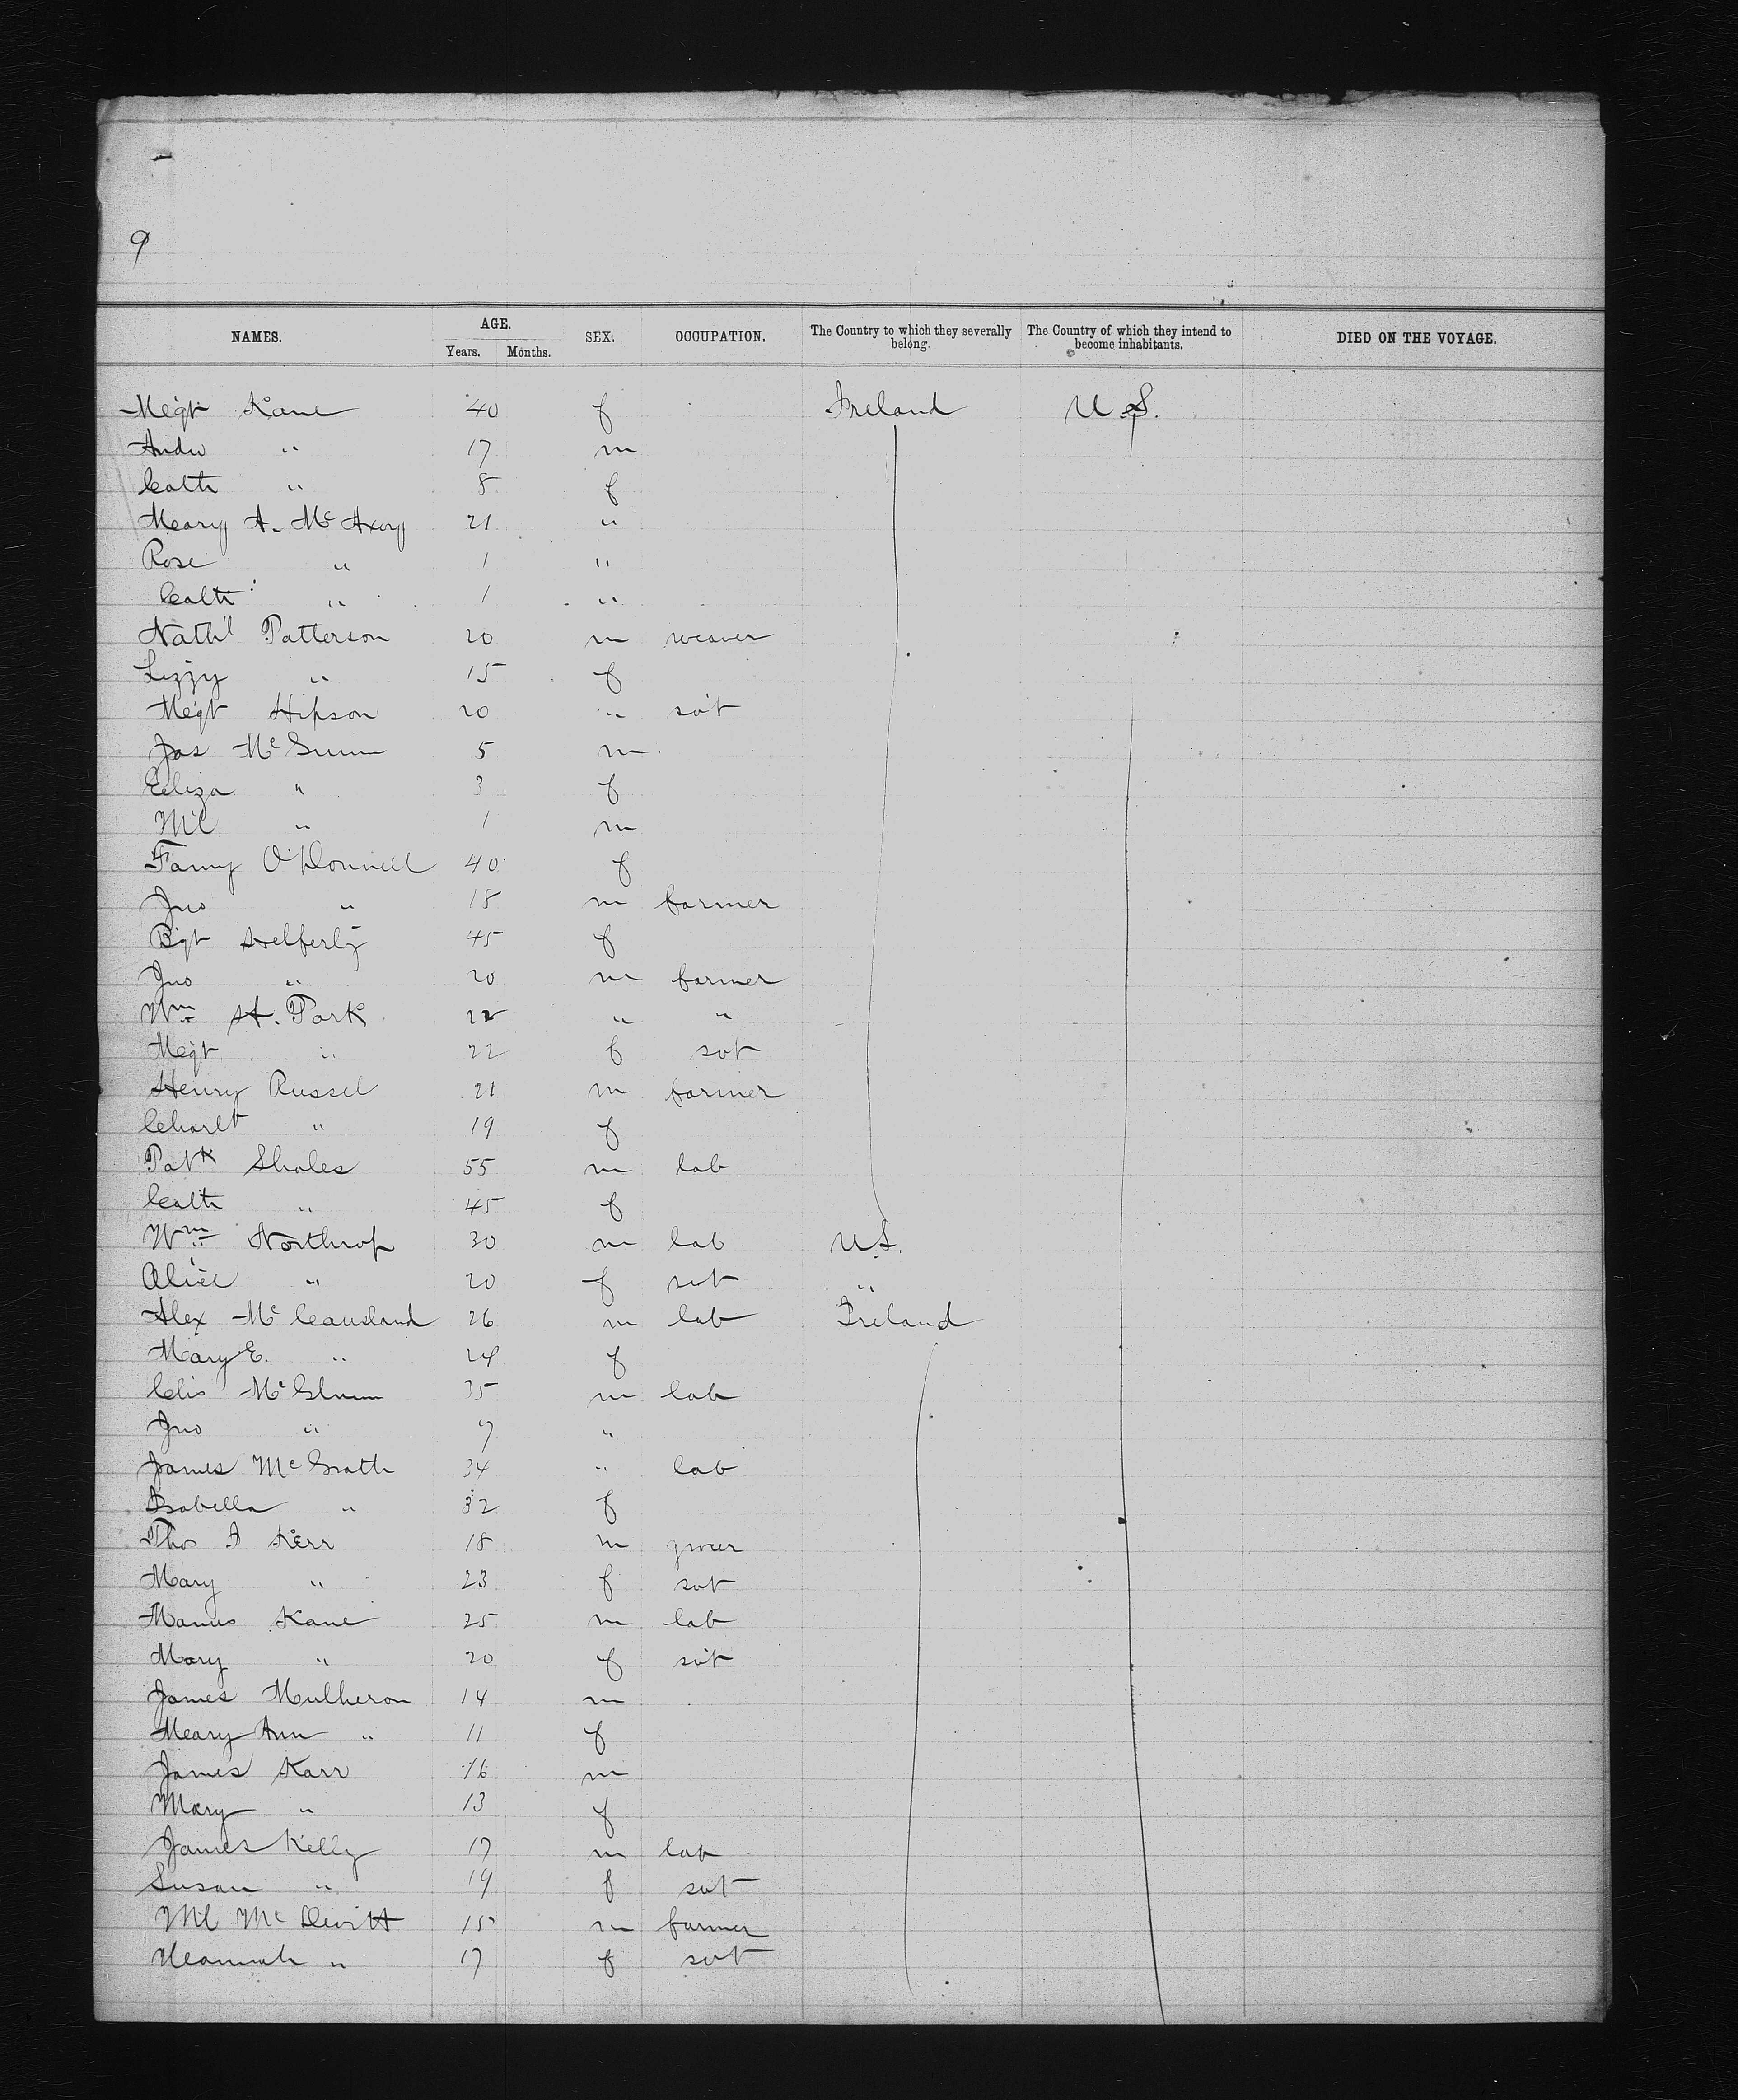 9
NAMES. AGE. Years. Months. SEX. OCCUPATION. The Country to which they severally belong. The Country of which they intend to become inhabitants. DIED ON THE VOYAGE.
Megt Kane 40 f Ireland U.S.
Andw " 17 m
Cath " 8 f
Mary A. Mc Avoy 21 "
Rose " 1 "
Cath " 1 "
Nath'l Patterson 20 m weaver
Lizzy " 15 f
Megt Hipson 20 " svt
Jas Mc Gunn 5 m
Eliza " 3 f
Ml " 1 m
Fanny O'Donnell 40 f
Jno " 18 m farmer
Bgt Helferty 45 f
Jno " 20 m farmer
Wm H. Park 22 " "
Megt " 22 f svt
Henry Russel 21 m farmer
Charlt " 19 f
Patk Sholes 55 m lab
Cath " 45 f
Wm Northrop 30 m lab U.S.
Alice " 20 f svt "
Alex Mc Causland 26 m lab Ireland
Mary E. " 24 f
Mc Glunn 35 m lab
Jno " 7 "
James Mc Grath 34 " lab
Isabella " 32 f
Thos Kerr 18 m grocer
Mary " 23 f svt
Manus Kane 25 m lab
Mary " 20 f svt
James Mulheron 14 m
Mary Ann " 11 f
James Karr 16 m
Mary " 13 f
James Kelly 17 m lab
Susan " 19 f svt
Ml Mc Devitt 15 m farmer
Hannah " 17 f svt